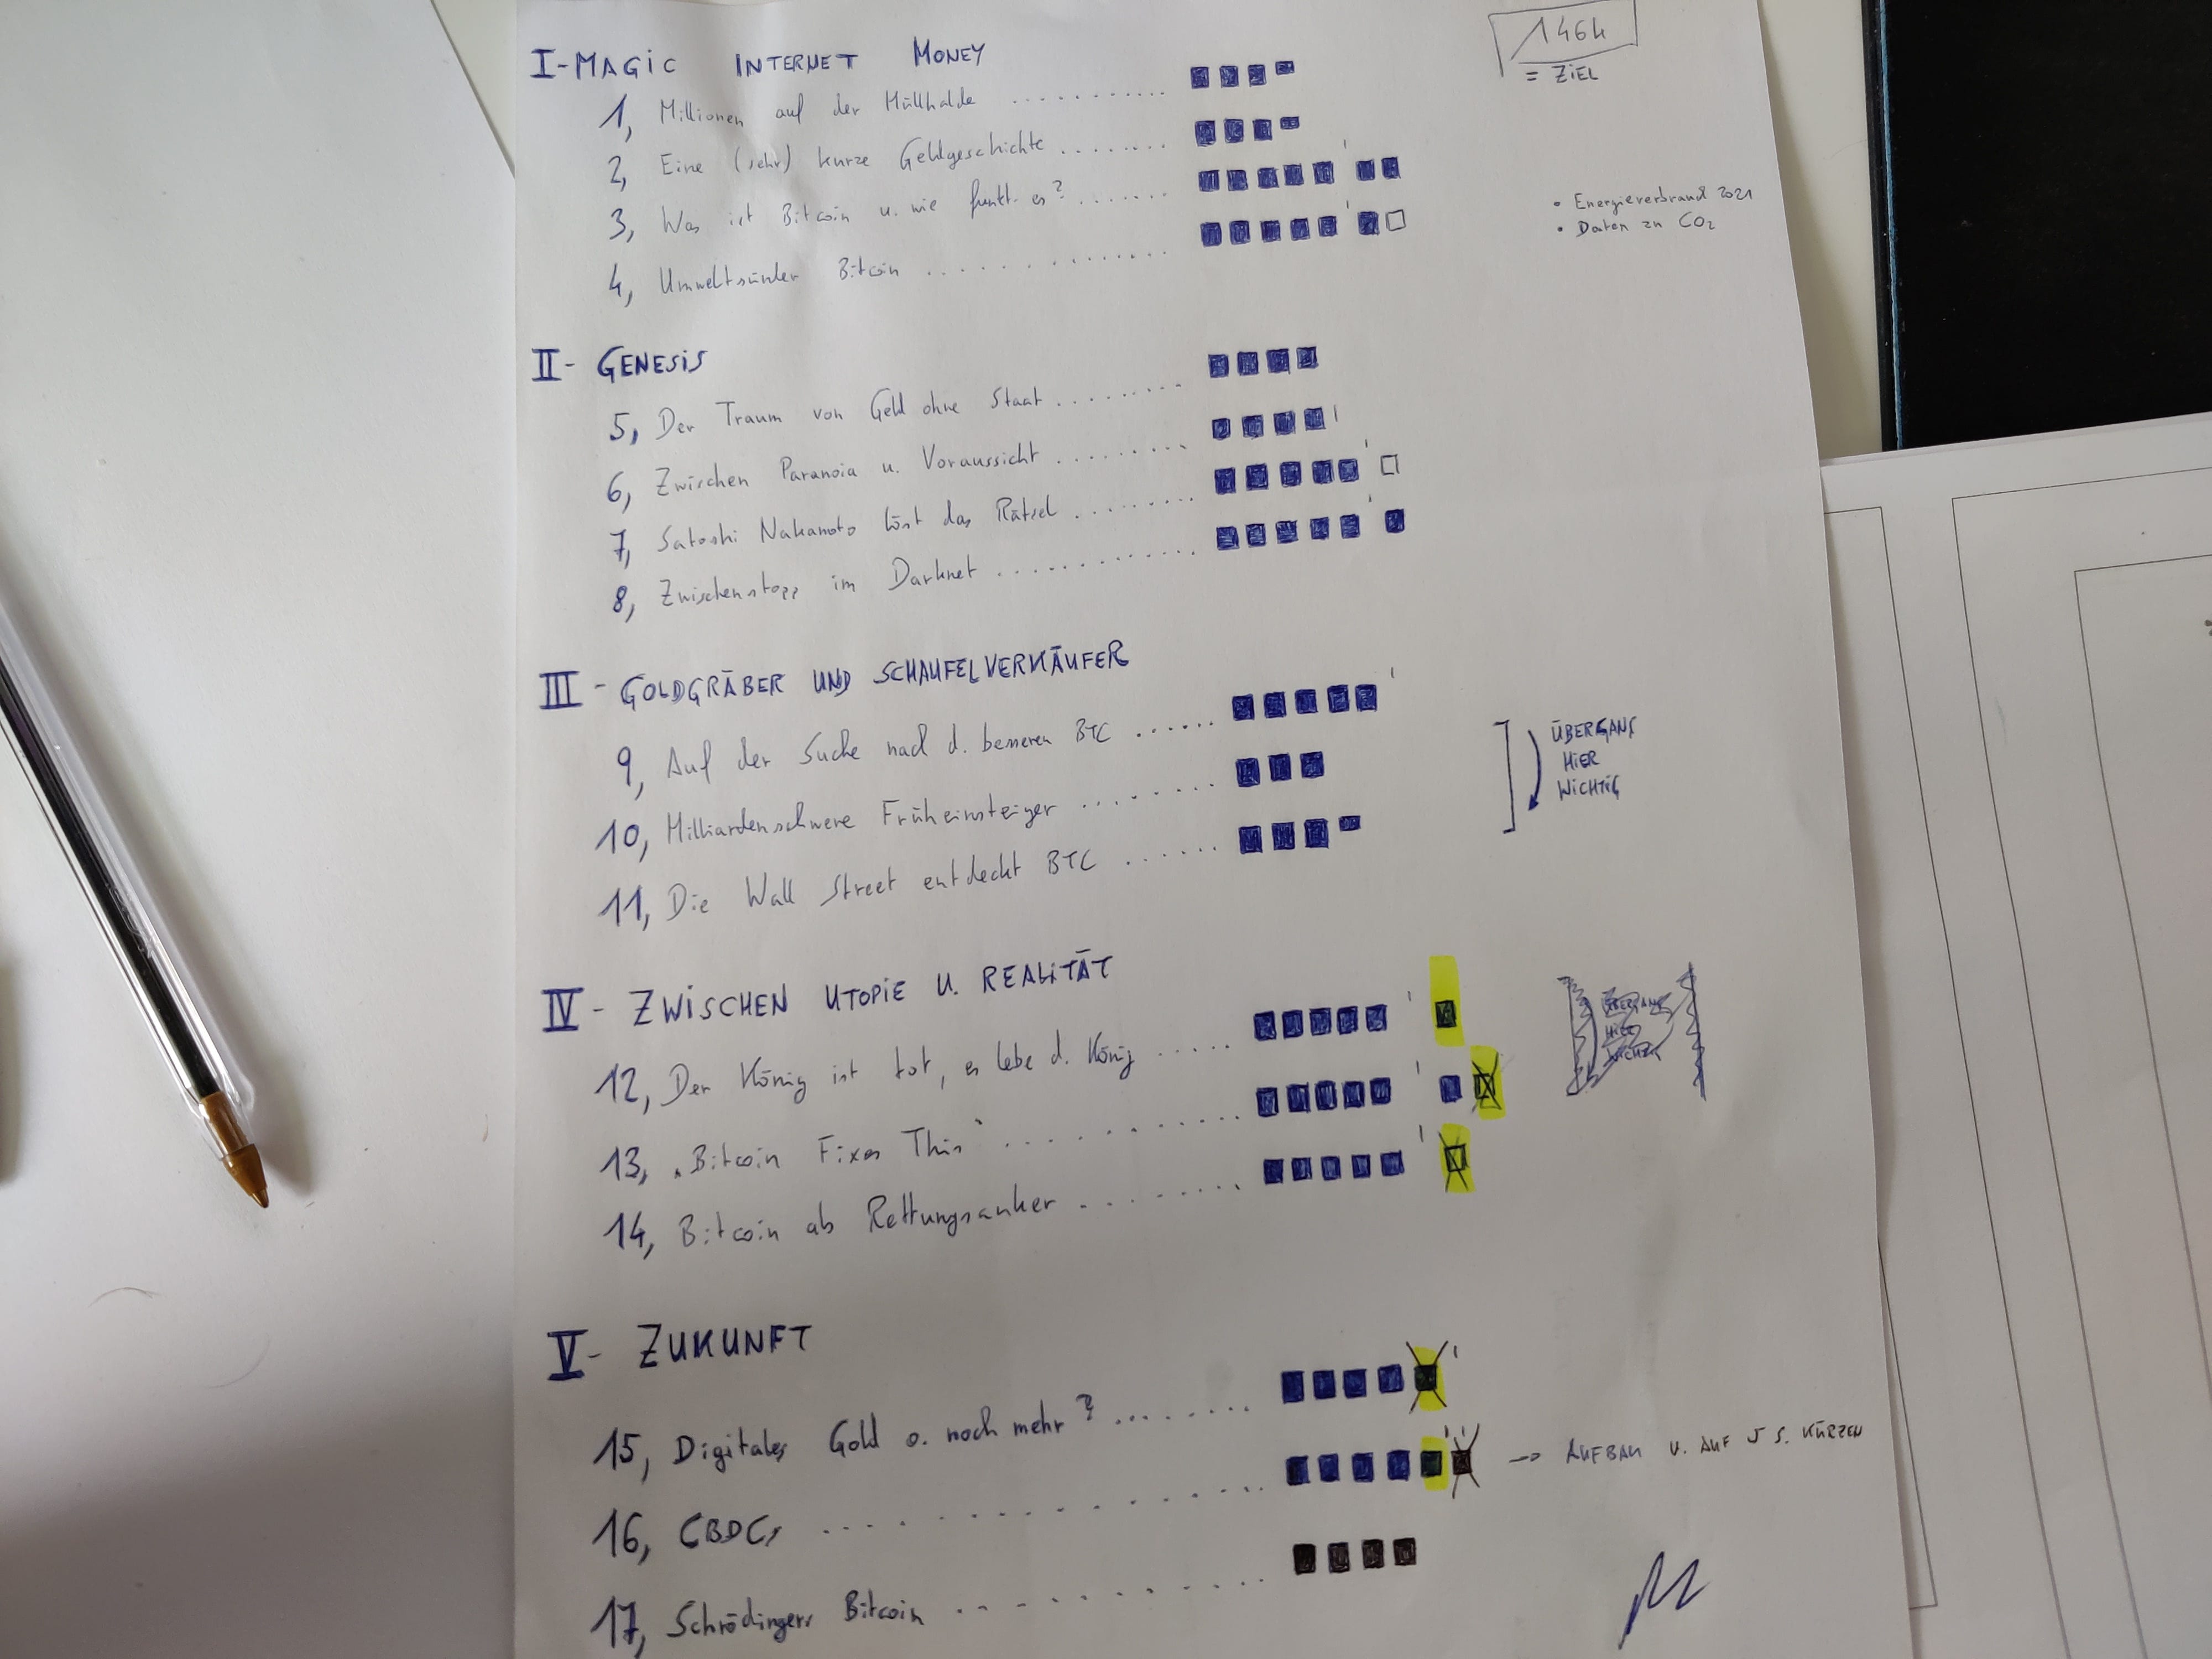 146h
= ZiEL
I-MAGiC INTERNET MONEY
1, Millionen auf der Müllhalde ...........
2, Eine (sehr) kurze Geldgeschichte ........
3, Was ist Bitcoin u. wie funkt. es? .......
• Energieverbrauch 2021
• Daten zu CO2
4, Umweltsünder Bitcoin .............
II- GENESiS
5, Der Traum von Geld ohne Staat ........
6, Zwischen Paranoia u. Voraussicht .........
7, Satoshi Nakamoto löst das Rätsel ........
8, Zwischenstopp im Darknet ............
III - GOLDGRÄBER UND SCHAUFELVERKÄUFER
9, Auf der Suche nach d. besseren BTC ......
ÜBERGANG
HiER
WiCHTiG
10, Milliardenschwere Früheinsteiger ........
11, Die Wall Street entdeckt BTC ......
IV - ZWiSCHEN UTOPiE U. REALiTÄT
12, Der König ist tot, es lebe d. König .....
13, „Bitcoin Fixes This" ..........
14, Bitcoin als Rettungsanker ........
V- ZUKUNFT
15, Digitales Gold o. noch mehr? ........
16, CBDCs ............
→ AUFBAU U. AUF 5 S. KÜRZEN
17, Schrödingers Bitcoin ..........